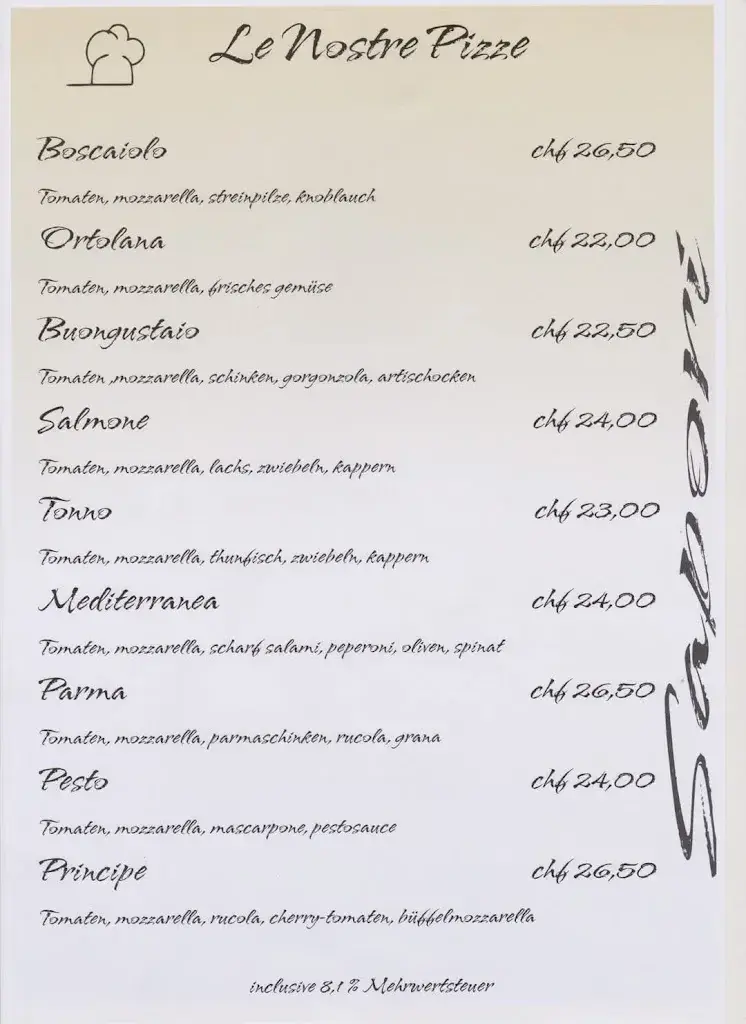 Le Nostre Pizze
Boscaiolo chf 26,50
Tomaten, mozzarella, streinpilze, knoblauch
Ortolana chf 22,00
Tomaten, mozzarella, frisches gemüse
Buongustaio chf 22,50
Tomaten ,mozzarella, schinken, gorgonzola, artischocken
Salmone chf 24,00
Tomaten, mozzarella, lachs, zwiebeln, kappern
Tonno chf 23,00
Tomaten, mozzarella, thunfisch, zwiebeln, kappern
Mediterranea chf 24,00
Tomaten, mozzarella, scharf salami, peperoni, oliven, spinat
Parma chf 26,50
Tomaten, mozzarella, parmaschinken, rucola, grana
Pesto chf 24,00
Tomaten, mozzarella, mascarpone, pestosauce
Principe chf 26,50
Tomaten, mozzarella, rucola, cherry-tomaten, büffelmozzarella
inclusive 8,1 % Mehrwertsteuer
Saporì